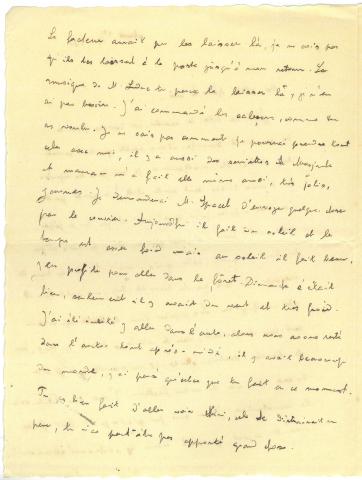 Le facteur aurait pu les laisser là, je ne sais pas
qu'ils les laissent à la poste jusqu'à mon retour. La
musique de M. tu peux la laisser là, je n'en
ai pas besoin. J'ai commandé les comme tu
as voulu. Je ne sais pas comment je pourrai prendre tout
cela avec moi, il y a aussi des de
et maman m'a fait elle même aussi, très jolies,
jaunes. Je demanderai M. d'envoyer quelque chose
par le courrier. Aujourd'hui il fait du soleil et le
temps est assez froid mais au soleil il fait beau,
j'en profite pour aller dans la fôret. Dimanche c'était
bien, seulement il y avait du vent et très froid.
J'ai été y aller dans l'auto, alors nous avons resté
dans l'auto tout après-midi, il y avait beaucoup
du monde, j'ai pensé qu'est-ce que tu fait en ce moment.
Tu as bien fait d'aller voir cela te
peu, tu n'as peut-être pas apporté grand chose.